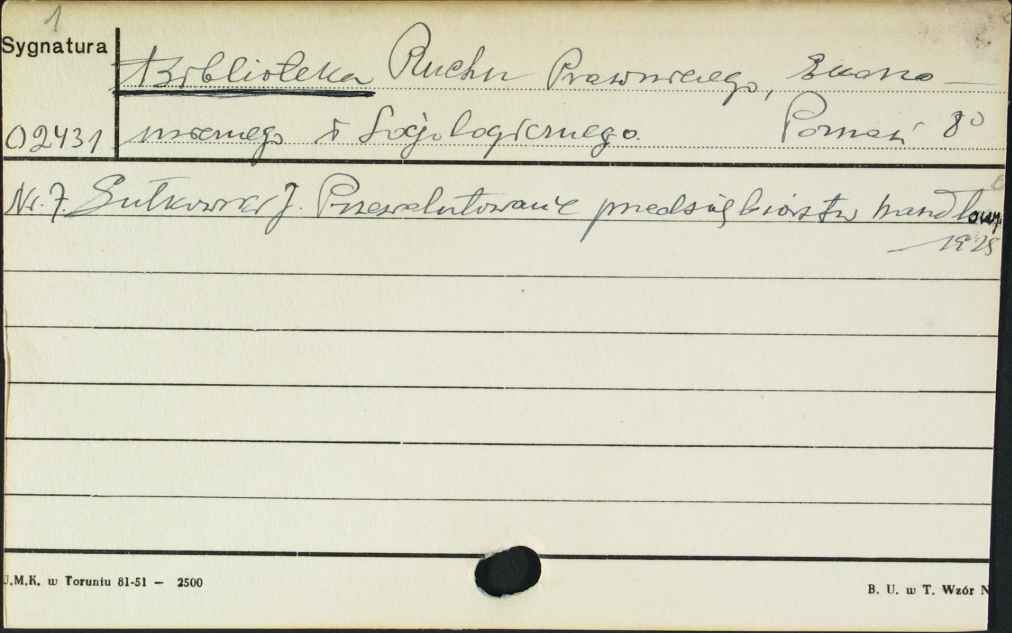 1
Sygnatura
Biblioteka Ruchu Prawniczego, Ekono-
02431 micznego i Socjologicznego. Poznań 8°
Nr. 7. Sułkowski J. Przewalutowanie przedsiębiorstw handlowy
1925
U.M.K. w Toruniu 81-51 — 2500
B. U. w T. Wzór N